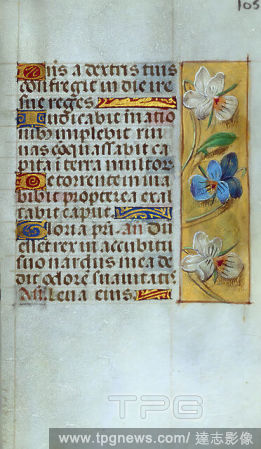 105
Dñs a dextris tuis
confregit in die ire
sue reges.
Iudicabit in natio
nibꝰ implebit rui
nas cōquassabit ca
pita ī terra multorꝝ
De torrente in uia
bibit propterea exal
tabit caput.
Gloria pri. an Dū
esset rex in accubitu
suo nardus mea de
dit odorē suauitatis
Leua eius.
TPG
www.tpgnews.com/ 達志影像